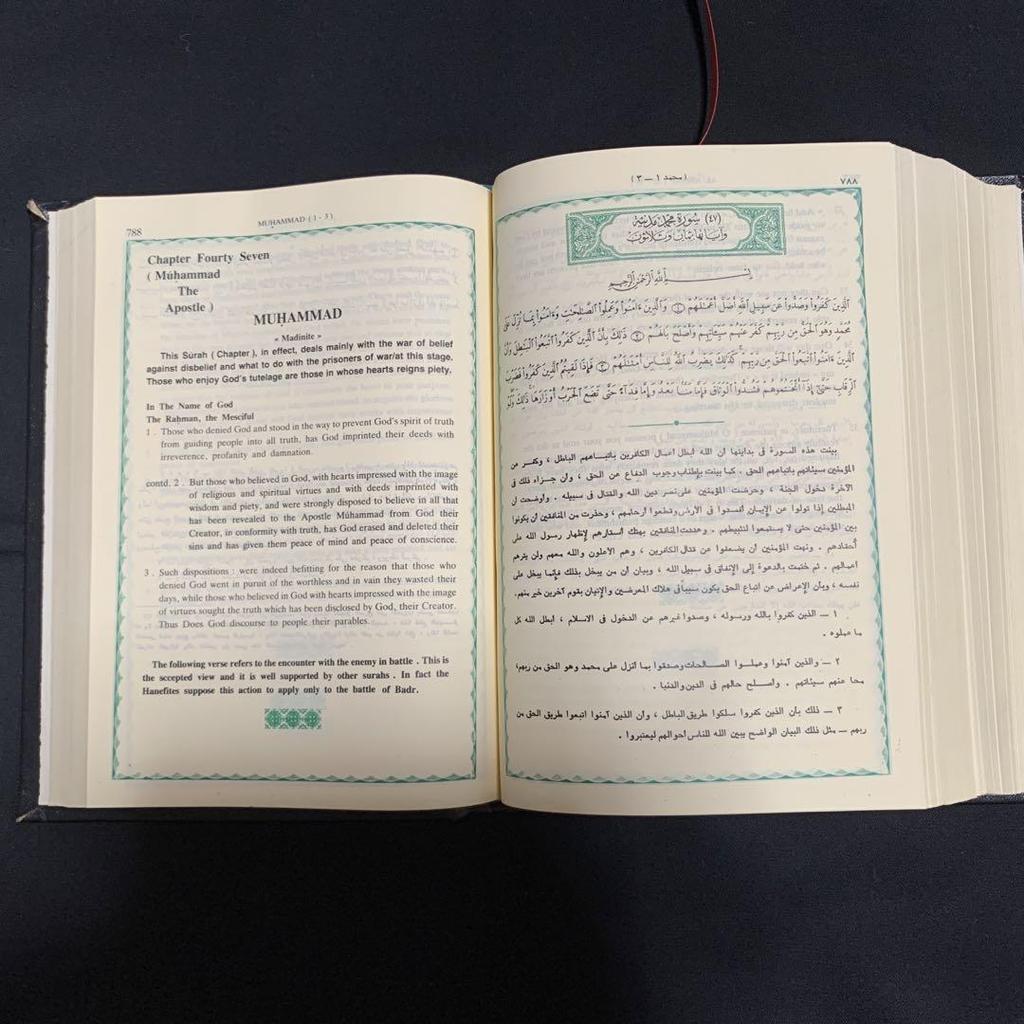 MUḤAMMAD ( 1 - 3 )
788
Chapter Fourty Seven
( Múḥammad
The
Apostle )
MUḤAMMAD
« Madinite »
This Súrah ( Chapter ), in effect, deals mainly with the war of belief
against disbelief and what to do with the prisoners of war/at this stage.
Those who enjoy God's tutelage are those in whose hearts reigns piety.
In The Name of God
The Raḥman, the Mesciful
1 . Those who denied God and stood in the way to prevent God's spirit of truth
from guiding people into all truth, has God imprinted their deeds with
irreverence, profanity and damnation.
contd. 2 . But those who believed in God, with hearts impressed with the image
of religious and spiritual virtues and with deeds imprinted with
wisdom and piety, and were strongly disposed to believe in all that
has been revealed to the Apostle Múhammad from God their
Creator, in conformity with truth, has God erased and deleted their
sins and has given them peace of mind and peace of conscience.
3 . Such dispositions : were indeed befitting for the reason that those who
denied God went in puruit of the worthless and in vain they wasted their
days, while those who believed in God with hearts impressed with the image
of virtues sought the truth which has been disclosed by God, their Creator.
Thus Does God discourse to people their parables.
The following verse refers to the encounter with the enemy in battle . This is
the accepted view and it is well supported by other surahs . In fact the
Hanefites suppose this action to apply only to the battle of Badr.
( محمد ١ — ٣ )
٧٨٨
(٤٧) سُورَة مُحَمَّد مَدَنِيَّة
وَآيَاتهَا ثَمَانٍ وَثَلَاثُونَ
بِسْمِ اللَّهِ الرَّحْمَٰنِ الرَّحِيمِ
ٱلَّذِينَ كَفَرُوا۟ وَصَدُّوا۟ عَن سَبِيلِ ٱللَّهِ أَضَلَّ أَعْمَٰلَهُمْ ۝١ وَٱلَّذِينَ ءَامَنُوا۟ وَعَمِلُوا۟ ٱلصَّٰلِحَٰتِ وَءَامَنُوا۟ بِمَا نُزِّلَ عَلَىٰ
مُحَمَّدٍ وَهُوَ ٱلْحَقُّ مِن رَّبِّهِمْ كَفَّرَ عَنْهُمْ سَيِّـَٔاتِهِمْ وَأَصْلَحَ بَالَهُمْ ۝٢ ذَٰلِكَ بِأَنَّ ٱلَّذِينَ كَفَرُوا۟ ٱتَّبَعُوا۟ ٱلْبَٰطِلَ وَأَنَّ
ٱلَّذِينَ ءَامَنُوا۟ ٱتَّبَعُوا۟ ٱلْحَقَّ مِن رَّبِّهِمْ كَذَٰلِكَ يَضْرِبُ ٱللَّهُ لِلنَّاسِ أَمْثَٰلَهُمْ ۝٣ فَإِذَا لَقِيتُمُ ٱلَّذِينَ كَفَرُوا۟ فَضَرْبَ
ٱلرِّقَابِ حَتَّىٰٓ إِذَآ أَثْخَنتُمُوهُمْ فَشُدُّوا۟ ٱلْوَثَاقَ فَإِمَّا مَنًّۢا بَعْدُ وَإِمَّا فِدَآءً حَتَّىٰ تَضَعَ ٱلْحَرْبُ أَوْزَارَهَا ذَٰلِكَ وَلَوْ
بينت هذه السورة فى بدايتها أن الله أبطل أعمال الكافرين باتباعهم الباطل ، وكفر عن
المؤمنين سيئاتهم باتباعهم الحق . كما بينت بإطناب وجوب الدفاع عن الحق ، وأن جزاء ذلك فى
الآخرة دخول الجنة ، وحرضت المؤمنين على نصر دين الله والقتال فى سبيله . وأوضحت أن
المبطلين إذا تولوا عن الإيمان أفسدوا فى الأرض وقطعوا أرحامهم ، وحذرت من المنافقين أن يكونوا
بين المؤمنين حتى لا يستمعوا لتثبيطهم . وهددت المنافقين بهتك أستارهم لإظهار رسول الله على
أحقادهم . ونهت المؤمنين أن يضعفوا عن قتال الكافرين ، وهم الأعلون والله معهم ولن يترهم
أعمالهم . ثم ختمت بالدعوة إلى الإنفاق فى سبيل الله ، وببان أن من يبخل بذلك فإنما يبخل على
نفسه ، وبأن الإعراض عن اتباع الحق يكون سبباً فى هلاك المعرضين والإتيان بقوم آخرين خير منهم.
١ — الذين كفروا بالله ورسوله ، وصدوا غيرهم عن الدخول فى الاسلام ، أبطل الله كل
ما عملوه .
٢ — والذين آمنوا وعملوا الصالحات وصدقوا بما أنزل على محمد وهو الحق من ربهم،
محا عنهم سيئاتهم . وأصلح حالهم فى الدين والدنيا .
٣ — ذلك بأن الذين كفروا سلكوا طريق الباطل ، وأن الذين آمنوا اتبعوا طريق الحق من
ربهم — مثل ذلك البيان الواضح يبين الله للناس أحوالهم ليعتبروا .